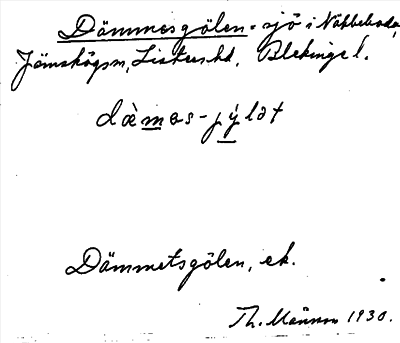 Dämmesgölen - sjö i Näbbeboda,
Jämshögsn, Listers hd, Blekinge l.
dämas-pýlət
Dämmetsgölen, ek.
Th. 1930.